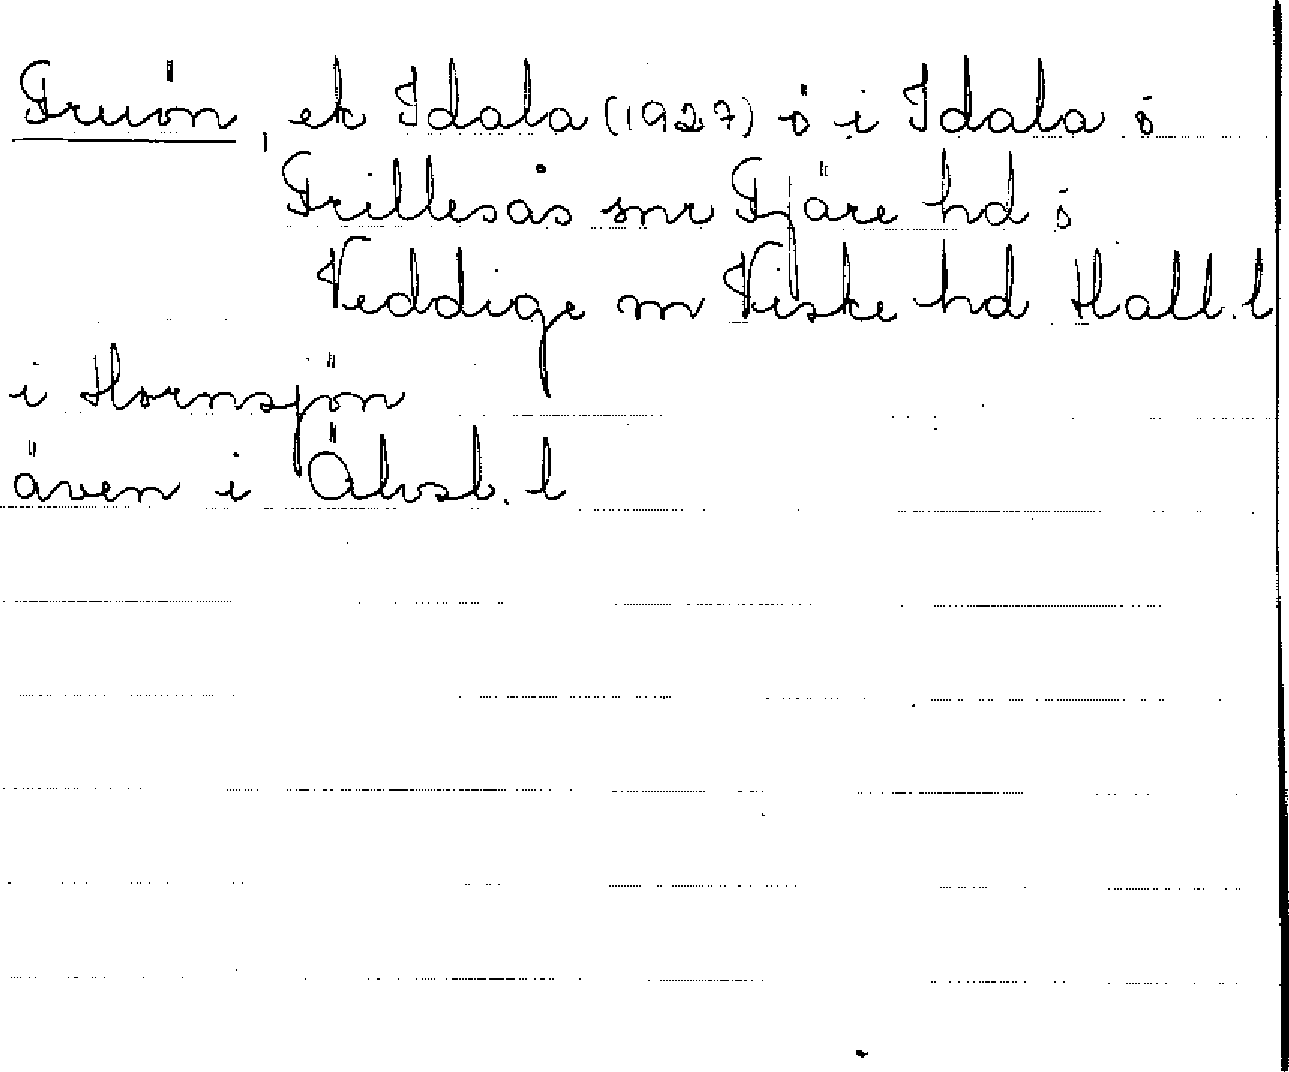 Fruön, ek Idala (1927) ö i Idala o
Frillesås snr Fjäre hd o
Veddige sn Viske hd Hall. l
i Hornsjön
även i Älvsb. l